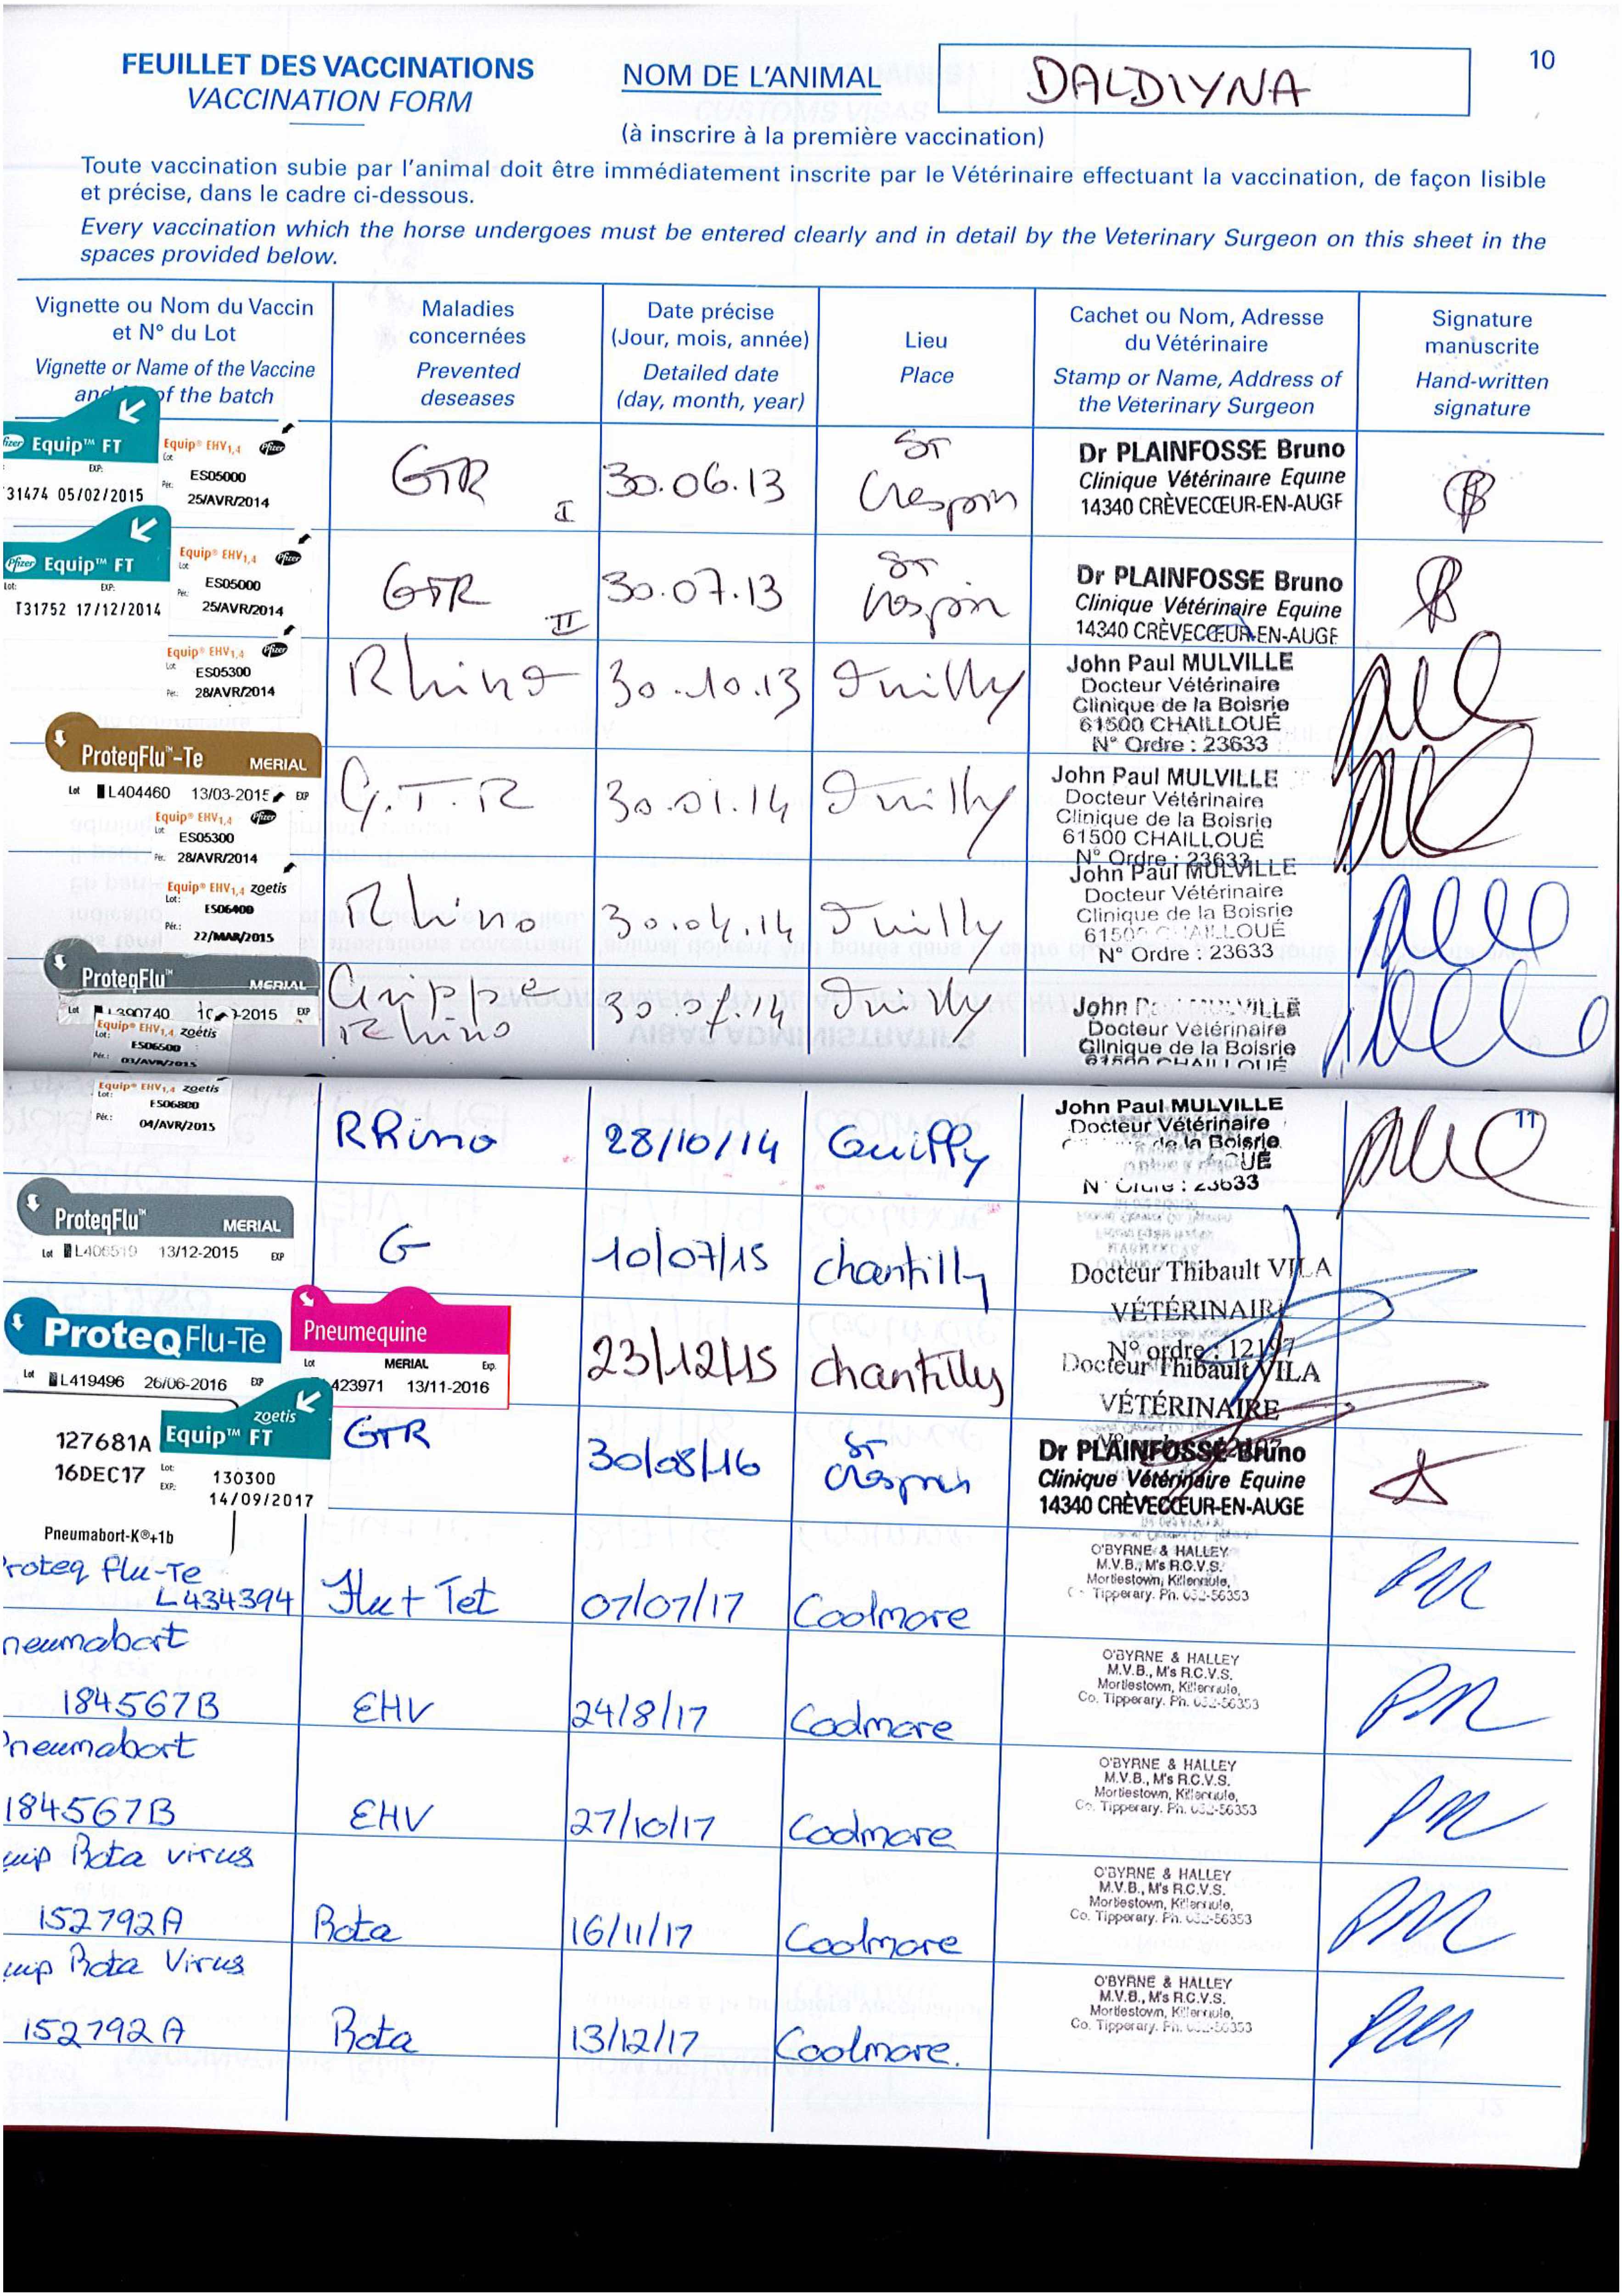 10
FEUILLET DES VACCINATIONS
VACCINATION FORM
NOM DE L'ANIMAL
DALDIYNA
(à inscrire à la première vaccination)
Toute vaccination subie par l'animal doit être immédiatement inscrite par le Vétérinaire effectuant la vaccination, de façon lisible
et précise, dans le cadre ci-dessous.
Every vaccination which the horse undergoes must be entered clearly and in detail by the Veterinary Surgeon on this sheet in the
spaces provided below.
Vignette ou Nom du Vaccin
et N° du Lot
Vignette or Name of the Vaccine
and of the batch
Maladies
concernées
Prevented
deseases
Date précise
(Jour, mois, année)
Detailed date
(day, month, year)
Lieu
Place
Cachet ou Nom, Adresse
du Vétérinaire
Stamp or Name, Address of
the Veterinary Surgeon
Signature
manuscrite
Hand-written
signature
Equip™ FT
EXP:
31474 05/02/2015
Equip® EHV1,4 Pfizer
Lot
ES05000
Per.
25/AVR/2014
GTR I
30.06.13
St
Crespin
Dr PLAINFOSSE Bruno
Clinique Vétérinaire Equine
14340 CRÈVECŒUR-EN-AUGE
Pfizer Equip™ FT
Lot: EXP:
T31752 17/12/2014
Equip® EHV1,4 Pfizer
Lot
ES05000
Per.
25/AVR/2014
GTR II
30.07.13
St
Crespin
Dr PLAINFOSSE Bruno
Clinique Vétérinaire Equine
14340 CRÈVECŒUR-EN-AUGE
Equip® EHV1,4 Pfizer
Lot
ES05300
Per. 28/AVR/2014
Rhino
30.10.13
John Paul MULVILLE
Docteur Vétérinaire
Clinique de la Boisrie
61500 CHAILLOUÉ
N° Ordre : 23633
ProteqFlu™-Te MERIAL
Lot L404460 13/03-2015 EXP
Equip® EHV1,4 Pfizer
Lot
ES05300
Per. 28/AVR/2014
G.T.R
30.01.14
John Paul MULVILLE
Docteur Vétérinaire
Clinique de la Boisrie
61500 CHAILLOUÉ
N° Ordre : 23633
Equip® EHV1,4 zoetis
Lot:
ES06400
Pér.: 22/MAR/2015
Rhino
30.04.14
John Paul MULVILLE
Docteur Vétérinaire
Clinique de la Boisrie
N° Ordre : 23633
ProteqFlu™ MERIAL
Lot L390740 EXP
Equip® EHV1,4 zoetis
Lot:
ES06500
Pér.: 03/AVR/2015
Grippe
Rhino
30.07.14
John
Docteur Vétérinaire
Clinique de la Boisrie
61500 CHAILLOUÉ
11
Equip® EHV1,4 zoetis
Lot:
ES06800
Pér.: 04/AVR/2015
RRino
28/10/14
John Paul MULVILLE
Docteur Vétérinaire
de la Boisrie
N° Ordre : 23633
ProteqFlu™ MERIAL
Lot L406519 13/12-2015 EXP
G
10/07/15
chantilly
Docteur Thibault VILA
VÉTÉRINAIRE
N° ordre : 12197
ProteqFlu-Te
Lot L419496 26/06-2016 EXP
Pneumequine
Lot MERIAL Exp.
423971 13/11-2016
23/12/15
chantilly
Docteur Thibault VILA
VÉTÉRINAIRE
127681A
16DEC17
Pneumabort-K®+1b
zoetis
Equip™ FT
Lot: 130300
EXP: 14/09/2017
GTR
30/08/16
St
Crespin
Dr PLAINFOSSE Bruno
Clinique Vétérinaire Equine
14340 CRÈVECŒUR-EN-AUGE
Proteq Flu-Te
L434394
Flu + Tet
07/07/17
Coolmore
O'BYRNE & HALLEY
M.V.B., M's R.C.V.S.
Mortlestown, Killenaule,
Co. Tipperary. Ph. 052-56353
Pneumabort
184567B
EHV
24/8/17
Coolmore
O'BYRNE & HALLEY
M.V.B., M's R.C.V.S.
Mortlestown, Killenaule,
Co. Tipperary. Ph. 052-56353
Pneumabort
184567B
EHV
27/10/17
Coolmore
O'BYRNE & HALLEY
M.V.B., M's R.C.V.S.
Mortlestown, Killenaule,
Co. Tipperary. Ph. 052-56353
uip Rota virus
152792A
Rota
16/11/17
Coolmore
O'BYRNE & HALLEY
M.V.B., M's R.C.V.S.
Mortlestown, Killenaule,
Co. Tipperary. Ph. 052-56353
uip Rota Virus
152792A
Rota
13/12/17
Coolmore.
O'BYRNE & HALLEY
M.V.B., M's R.C.V.S.
Mortlestown, Killenaule,
Co. Tipperary. Ph. 052-56353